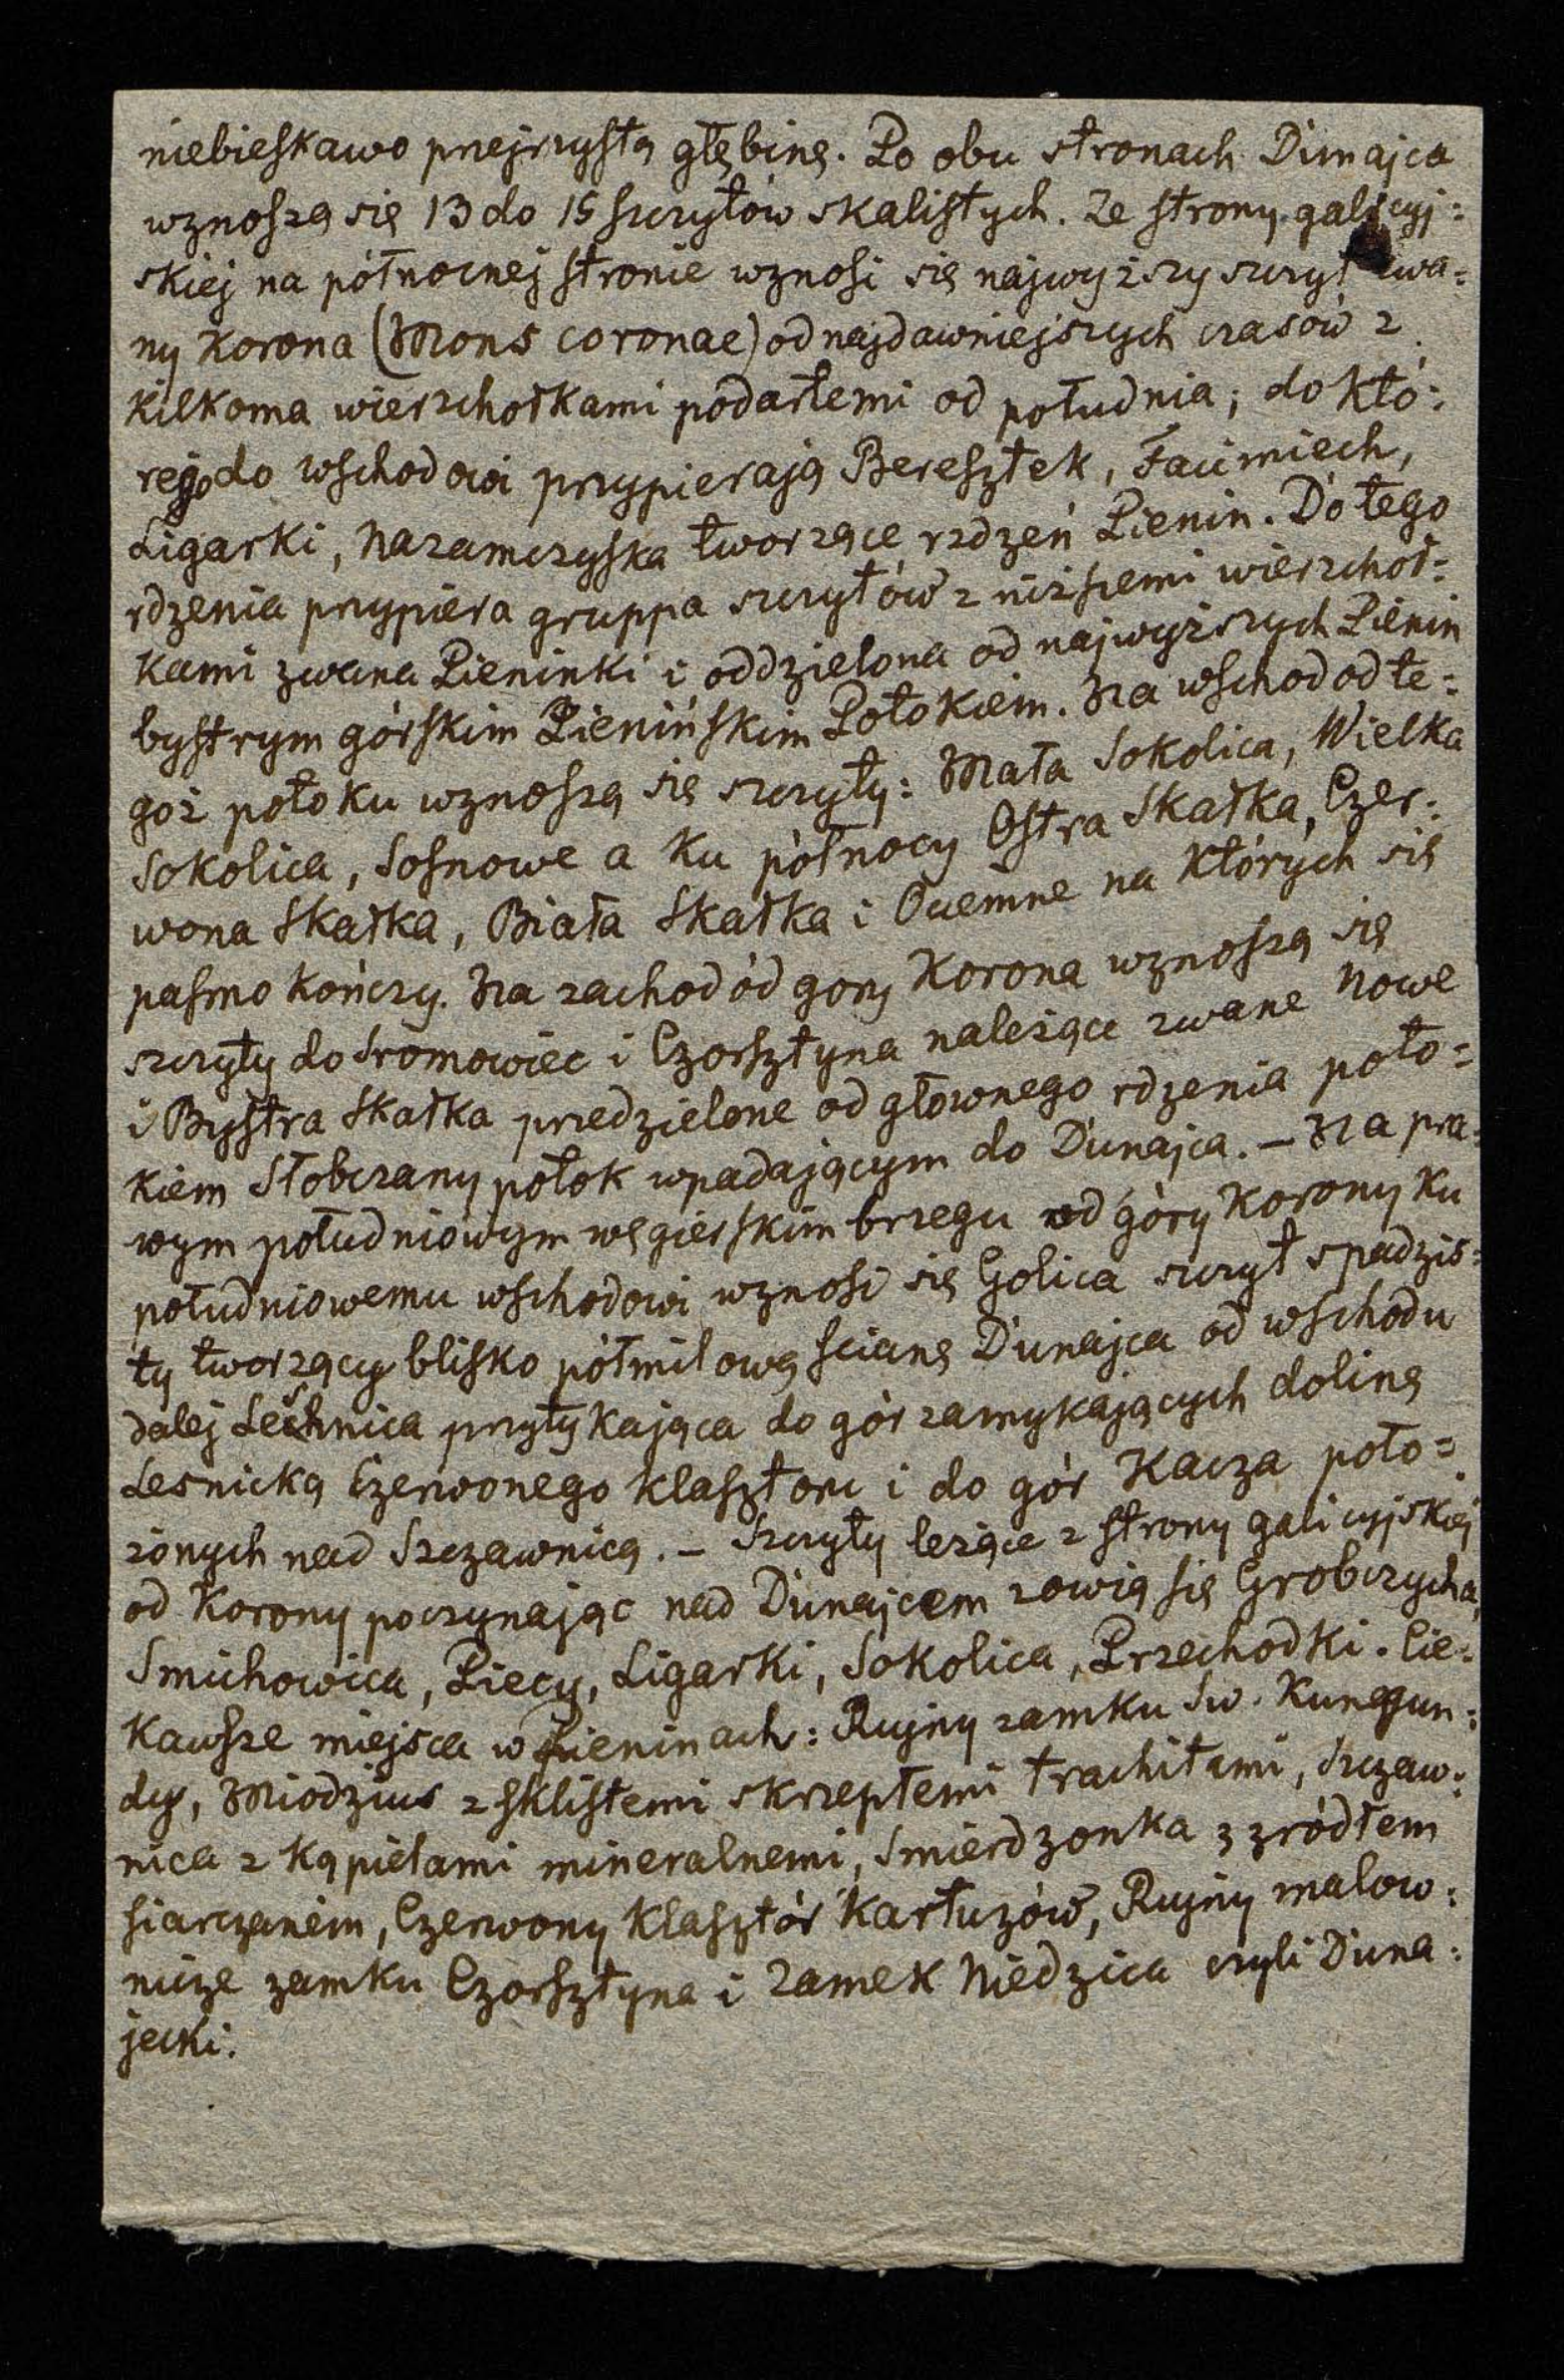 niebieskawo przejrzystą głębinę. Po obu stronach Dunajca
wznoszą się 13 do 15 szczytów skalistych. Ze strony galicyj=
skiej na północnej stronie wznosi się najwyższy szczyt zwa=
ny Korona (Mons coronae) od najdawniejszych czasów z
kilkoma wierzchołkami podartemi od południa; do któ=
rego do wschodowi przypierają Beresztek, Facimiech,
Ligarki, Nazamczyska tworzące rdzeń Pienin. Do tego
rdzenia przypiera gruppa szczytów z niższemi wierzchoł=
kami zwana Pieninki i oddzielona od najwyższych Pienin
bystrym górskim Pienińskim Potokiem. Na wschod od te=
goż potoku wznoszą się szczyty: Mała Sokolica, Wielka
Sokolica, Sosnowe a ku północy Ostra Skałka, Czer=
wona Skałka, Biała Skałka i Ociemne na których się
pasmo kończy. Na zachod od gory Korona wznoszą się
szczyty do Sromowiec i Czorsztyna należące zwane Nowe
i Bystra Skałka przedzielone od głownego rdzenia poto=
kiem Słobczany potok wpadającym do Dunajca. – Na pra=
wym południowym węgierskim brzegu od góry Korony ku
południowemu wschodowi wznosi się Golica szczyt spadzis=
ty tworzący blisko półmilową scianę Dunajca od wschodu
dalej Leśnica przytykająca do gór zamykających dolinę
Lesnicką Czerwonego klasztoru i do gór Kacza poło=
żonych nad Szczawnicą. – Szczyty leżące z strony galicyjskiej
od Korony poczynając nad Dunajcem zowią się Grobczycha,
Smichowica, Piecy, Ligarki, Sokolica, Przechodki. Cie=
kawsze miejsca w Pieninach: Rujny zamku Św. Kunegun=
dy, Miodzius z sklistemi skrzepłemi trachitami, Szczaw=
nica z kąpielami mineralnemi, Smierdzonka z zródłem
siarczanem, Czerwony Klasztór Kartuzów, Rujny malow=
nicze zamku Czorsztyna i zamek Niedzica czyli Duna=
jecki.